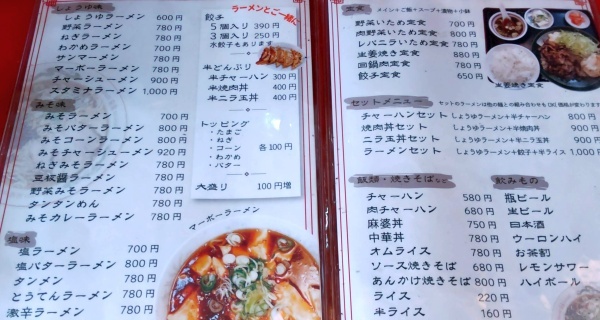 しょうゆ味
しょうゆラーメン 600円
野菜ラーメン 780円
ねぎラーメン 780円
わかめラーメン 700円
サンマーメン 780円
マーボーラーメン 780円
チャーシューメン 900円
スタミナラーメン 1,000円
みそ味
みそラーメン 700円
みそバターラーメン 800円
みそコーンラーメン 800円
みそチャーシューメン 920円
ねぎみそラーメン 780円
豆板醤ラーメン 780円
野菜みそラーメン 780円
タンタンめん 780円
みそカレーラーメン 780円
塩味
塩ラーメン 700円
塩バターラーメン 800円
タンメン 780円
とうてんラーメン 780円
激辛ラーメン 780円
ラーメンとご一緒に
餃子
5個入り 390円
3個入り 250円
水餃子もあります
半どんぶり
半チャーハン 300円
半焼肉丼 400円
半ニラ玉丼 400円
トッピング
・たまご
・ねぎ
・コーン 各100円
・わかめ
・バター
大盛り 100円増
マーボーラーメン
定食 メイン+ご飯+スープ+漬物+小鉢
野菜いため定食 700円
肉野菜いため定食 800円
レバニラいため定食 780円
生姜焼き定食 880円
回鍋肉定食 880円
餃子定食 650円
生姜焼き定食
セットメニュー セットのラーメンは他の麺との組み合わせもOK(価格が変わります)
チャーハンセット しょうゆラーメン+半チャーハン 800円
焼肉丼セット しょうゆラーメン+半焼肉丼 900円
ニラ玉丼セット しょうゆラーメン+半ニラ玉丼 900円
ラーメンセット しょうゆラーメン+餃子+半ライス 1,000円
飯類・焼きそばなど
チャーハン 580円
肉チャーハン 680円
麻婆丼 750円
中華丼 780円
オムライス 780円
ソース焼きそば 680円
あんかけ焼きそば 850円
ライス 220円
半ライス 160円
飲みもの
瓶ビール
生ビール
日本酒
ウーロンハイ
お茶割
レモンサワー
ハイボール